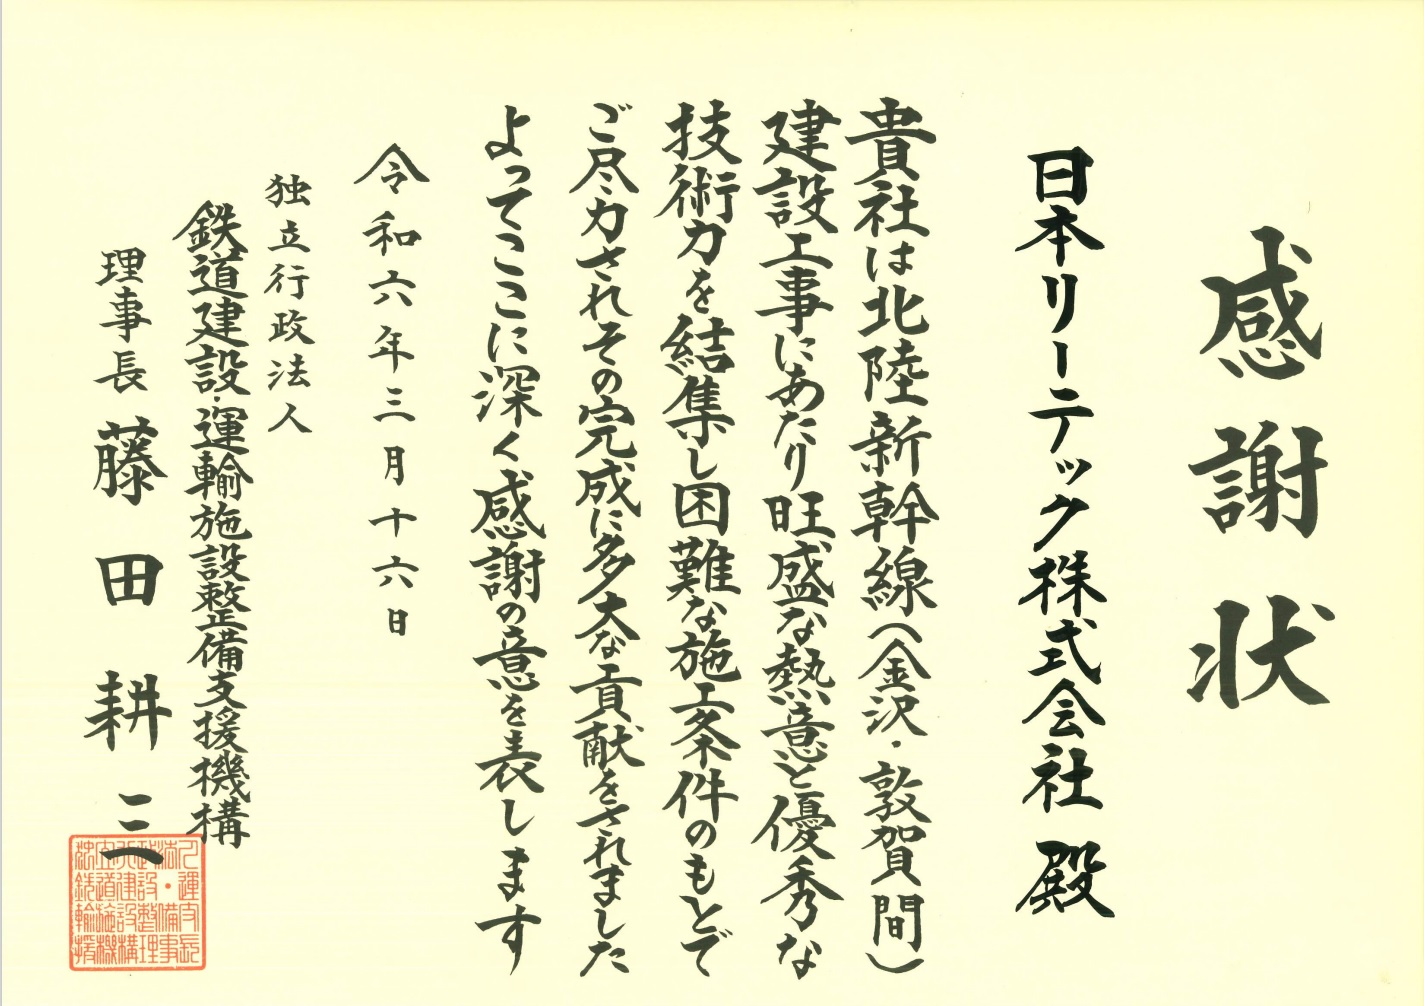 感謝状
日本リーテック株式会社 殿
貴社は北陸新幹線(金沢・敦賀間)
建設工事にあたり旺盛な熱意と優秀な
技術力を結集し困難な施工条件のもとで
ご尽力されその完成に多大な貢献をされました
よってここに深く感謝の意を表します
令和六年三月十六日
独立行政法人
鉄道建設・運輸施設整備支援機構
理事長 藤田耕三